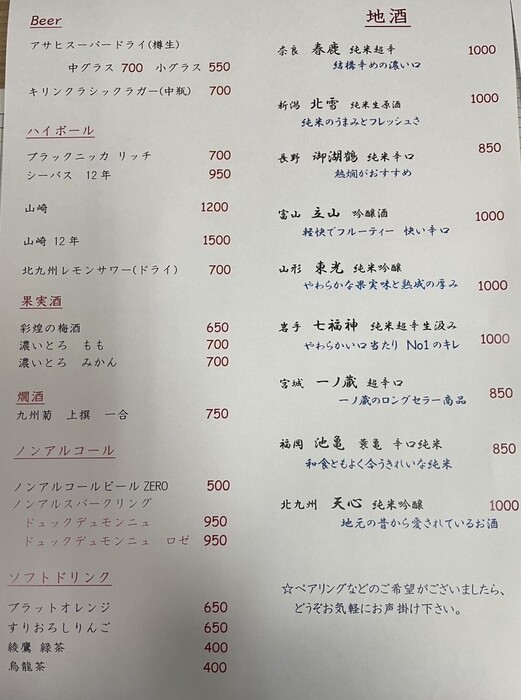 Beer
アサヒスーパードライ(樽生)
中グラス 700 小グラス 550
キリンクラシックラガー(中瓶) 700
ハイボール
ブラックニッカ リッチ 700
シーバス 12年 950
山崎 1200
山崎 12年 1500
北九州レモンサワー(ドライ) 700
果実酒
彩煌の梅酒 650
濃いとろ もも 700
濃いとろ みかん 700
燗酒
九州菊 上撰 一合 750
ノンアルコール
ノンアルコールビール ZERO 500
ノンアルスパークリング
ドュックデュモンニュ 950
ドュックデュモンニュ ロゼ 950
ソフトドリンク
ブラットオレンジ 650
すりおろしりんご 650
綾鷹 緑茶 400
烏龍茶 400
地酒
奈良 春鹿 純米超辛 1000
結構辛めの濃い口
新潟 北雪 純米生原酒 1000
純米のうまみとフレッシュさ
長野 御湖鶴 純米辛口 850
熱燗がおすすめ
富山 立山 吟醸酒 1000
軽快でフルーティー 快い辛口
山形 東光 純米吟醸
やわらかな果実味と熟成の厚み 1000
岩手 七福神 純米超辛生汲み
やわらかい口当たり No1のキレ 1000
宮城 一ノ蔵 超辛口
一ノ蔵のロングセラー商品 850
福岡 池亀 蓑亀 辛口純米 850
和食ともよく合うきれいな純米
北九州 天心 純米吟醸 1000
地元の昔から愛されているお酒
☆ペアリングなどのご希望がございましたら、
どうぞお気軽にお声掛け下さい。